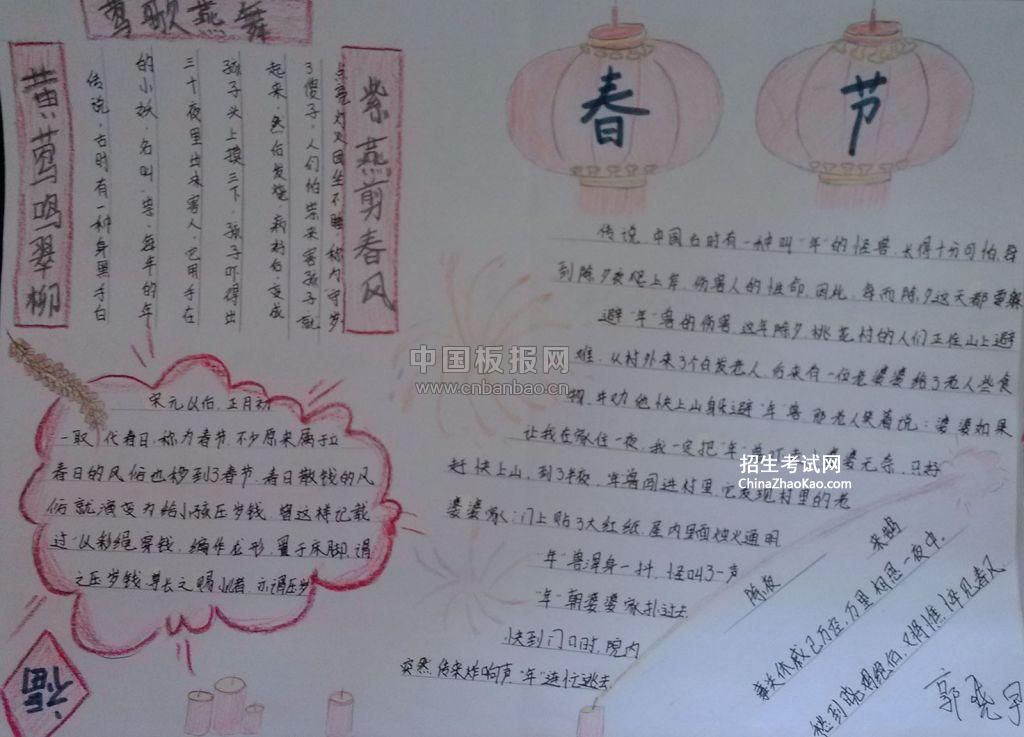 莺歌燕舞
黄莺鸣翠柳
紫燕剪春风
传说,古时有一种身黑手白
的小妖,名叫"祟",每年的年
三十夜里出来害人,它用手在
孩子头上摸三下,孩子吓得出
起来,然后发烧,病好后变成
了傻子,人们怕祟来害孩子,就
点亮灯火团坐不睡,称为"守岁
春
节
传说,中国古时有一种叫"年"的怪兽,长得十分可怕,每
到除夕夜爬上岸,伤害人的性命,因此,每而除夕这天都要躲
避"年"兽的伤害,这年除夕,桃花村的人们正在山上避
难,从村外来了个白发老人,后来有一位老婆婆给了老人些食
物,并劝他快上山躲避"年"兽,那老人笑着说:婆婆如果
让我在家住一夜,我一定把"年"无奈,只好
赶快上山,到了半夜,年兽闯进村里,它发现村里的老
婆婆家:门上贴了大红纸,屋内里面烛火通明
"年"兽浑身一抖,怪叫了一声
"年"朝婆婆家扑过去
快到门口时,院内
突然传来炸响声,"年"连忙逃去
宋元以后,正月初
一取代春日,称为春节,不少原来属于立
春日的风俗也移到了春节,春日散钱的风
俗就演变为给小孩压岁钱,曾这样记载
过"以彩绳穿钱,编作龙形,置于床脚,谓
之压岁钱,尊长之赐小儿者,亦谓压岁
福
除夜
来鹄
事关休戚已成空,万里相思一夜中,
愁到晓鸡声绝后,又将憔悴见春风
郭晓宇
中国板报网
www.cnbanbao.cn
招生考试网
ChinaZhaoKao.com